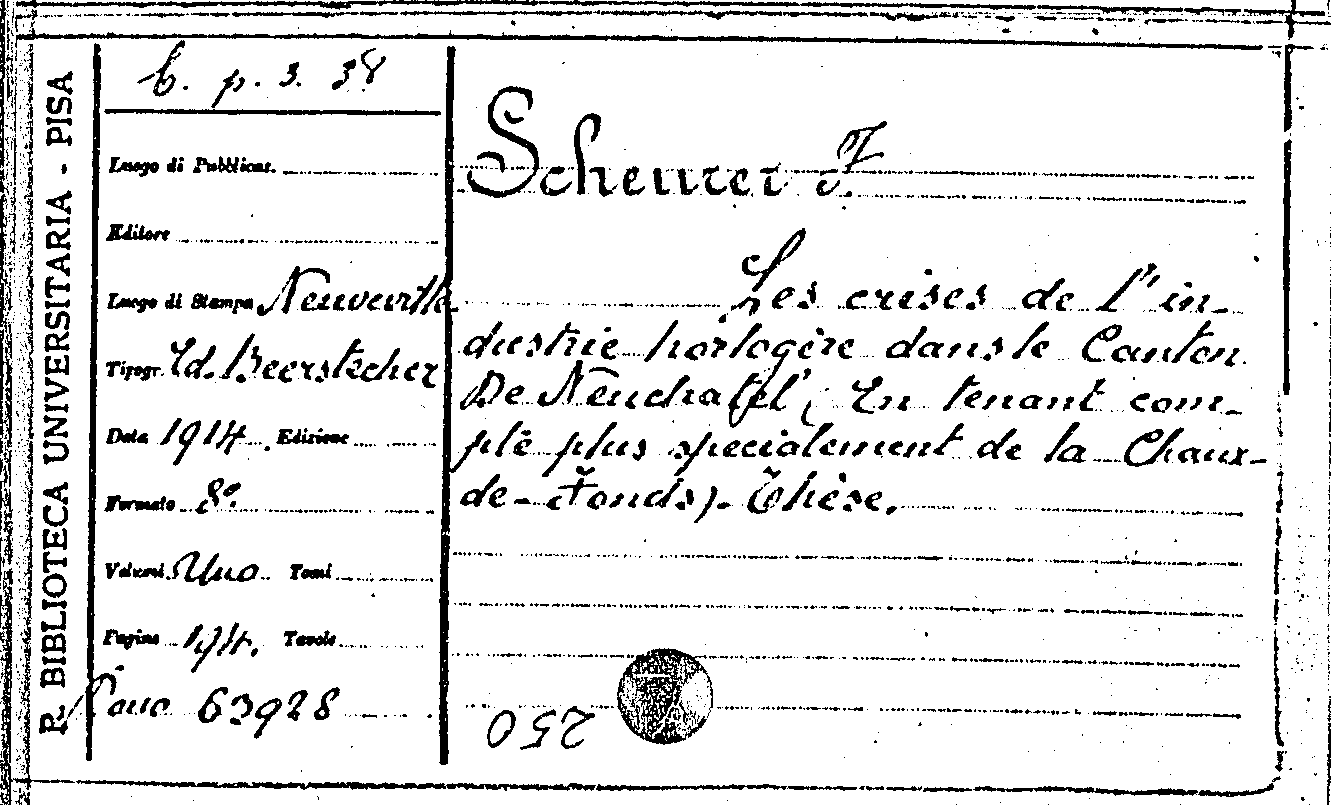 R. BIBLIOTECA UNIVERSITARIA - PISA
C. p. 3. 38
Luogo di Pubblicaz.
Editore
Luogo di Stampa Neuveville
Tipogr. Ed. Beerstecher
Data 1914 Edizione
Formato 8º.
Volumi Uno Tomi
Pagine 194. Tavole
63928
Scheurer F.
Les crises de l'in-
dustrie horlogère dans le Canton
De Neuchatel, (En tenant com-
pte plus specialement de la Chaux-
de-Fonds). Thèse.
250